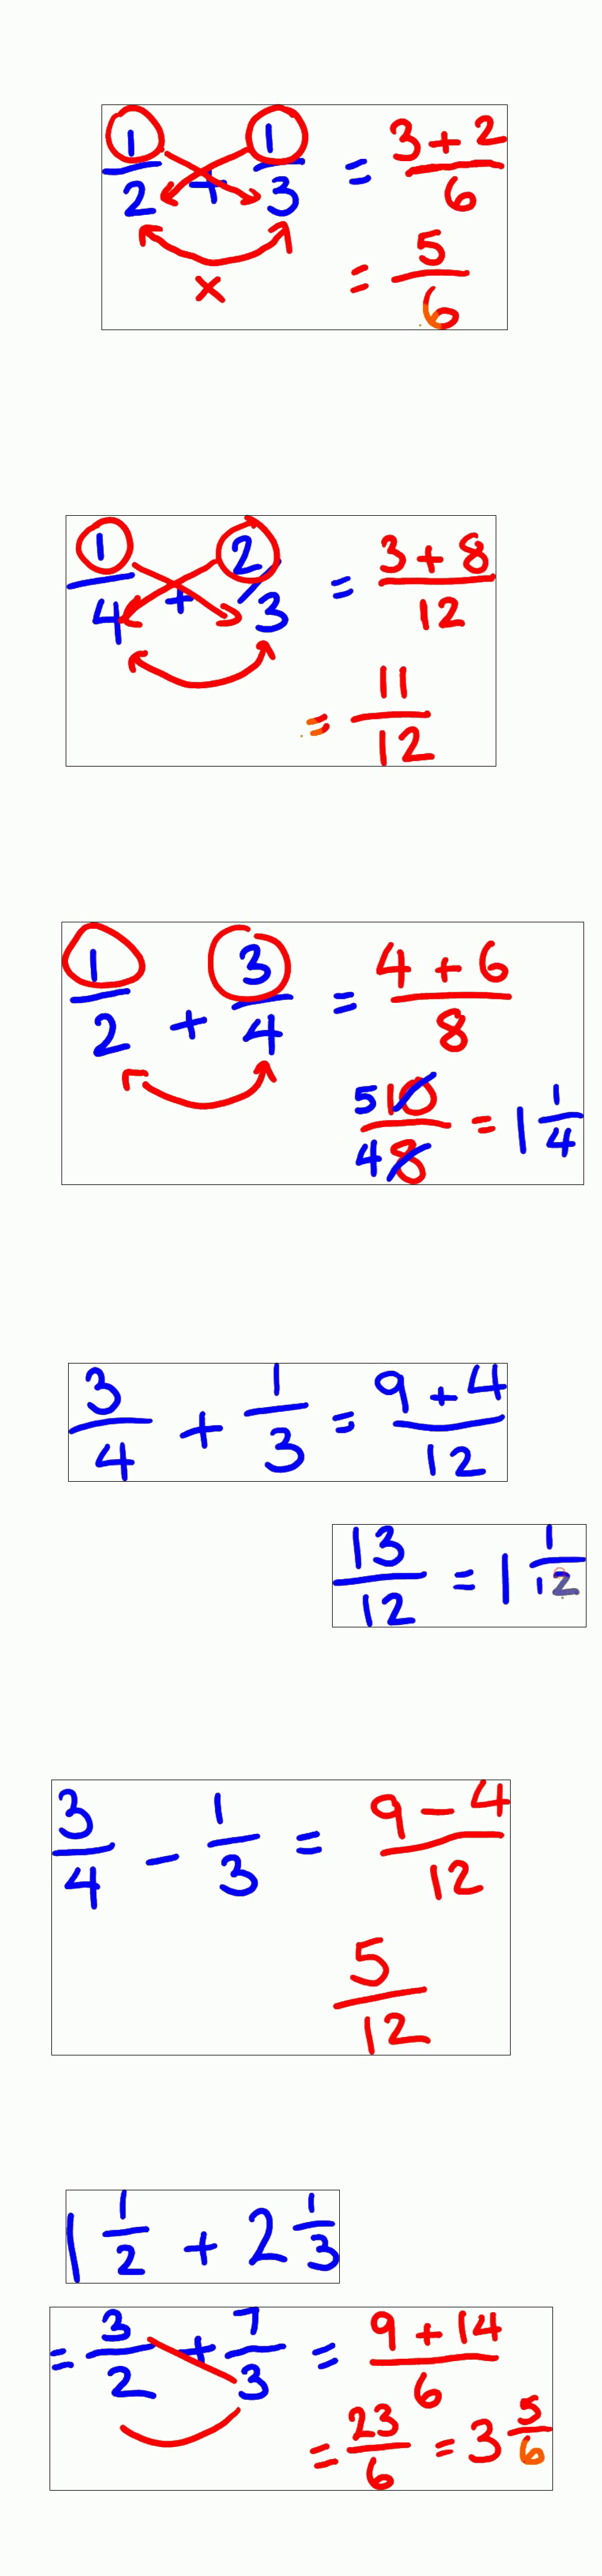 1/2 + 1/3 = (3 + 2)/6
x
= 5/6
1/4 + 2/3 = (3 + 8)/12
= 11/12
1/2 + 3/4 = (4 + 6)/8
5 10 / 4 8 = 1 1/4
3/4 + 1/3 = (9 + 4)/12
13/12 = 1 1/12
3/4 - 1/3 = (9 - 4)/12
5/12
1 1/2 + 2 1/3
= 3/2 + 7/3 = (9 + 14)/6
= 23/6 = 3 5/6